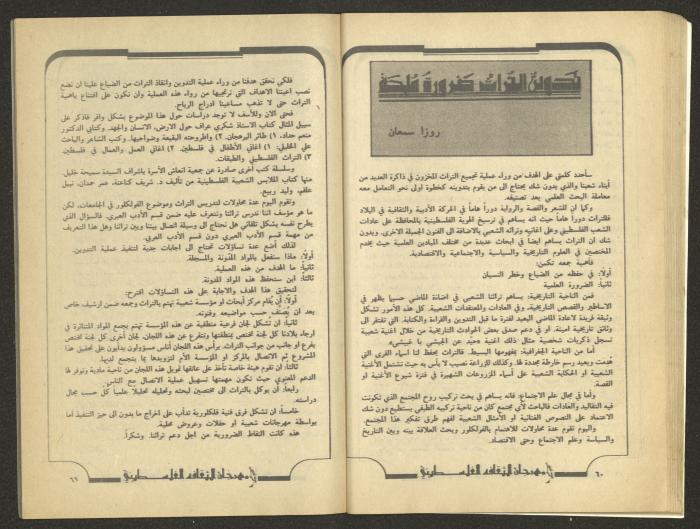 تدوين التراث ضرورة ملحة
روزا سمعان
سأحدد كلمتي على الهدف من وراء عملية تجميع التراث المخزون في ذاكرة العديد من
أبناء شعبنا والذي بدون شك يحتاج الى من يقوم بتدوينه كخطوة اولى نحو التعامل معه
معاملة البحث العلمي بعد تصنيفه.
وكما ان للشعر والقصة والرواية دوراً هاماً في الحركة الأدبية والثقافية في البلاد
فللتراث دوراً هاماً حيث انه يساهم في ترسيخ الهوية الفلسطينية بالمحافظة على عادات
الشعب الفلسطيني وعلى اغانيه وتراثه الشعبي بالاضافة الى الفنون الجميلة الاخرى. وبدون
شك ان التراث يساهم ايضاً في ابحاث عديدة من مختلف الميادين العلمية حيث يخدم
المختصين في العلوم التاريخية والسياسية والاجتماعية والاقتصادية.
فأهمية جمعه تكمن:
أولاً: في حفظه من الضياع وخطر النسيان
ثانياً: الضرورة العلمية
فمن الناحية التاريخية: يساهم تراثنا الشعبي في اضاءة الماضي حسبما يظهر في
الاساطير والقصص التاريخية، وفي العادات والمعتقدات الشعبية. كل هذه الأمور تشكل
وثيقة فريدة لاعادة الماضي البعيد لفترة ما قبل التدوين والقراءة والكتابة. التي تفتقر الى
وثائق تاريخية امينة. او في دعم صدق بعض الحوادث التاريخية من خلال اغنية شعبية
تسجل ذكريات شخصية مثال ذلك اغنية «عيّد عن الجيشي يا غبيشي».
أما من الناحية الجغرافية: بمفهومها البسيط. فالتراث يحفظ لنا اسماء القرى التي
هُدمت ويعيد رسم خارطة محددة لها. وكذلك للزراعة نصيب لا بأس به حيث تشتمل الأغنية
الشعبية او الحكاية الشعبية على أسماء المزروعات الشهيرة في فترة شيوع الأغنية او
القصة.
وأما في مجال علم الاجتماع: فانه يساهم في بحث تركيب روح المجتمع الذي تكونت
فيه التقاليد والعادات فالباحث لأي مجتمع كان من ناحية تركيبه الطبقي يستطيع دون شك
الاعتماد على النصوص الغنائية او الأمثال الشعبية لفهم طرق تفكير هذا المجتمع.
واليوم تقوم عدة محاولات للاهتمام بالفولكلور وبحث العلاقة بينه وبين التاريخ
والسياسة وعلم الاجتماع وحتى الاقتصاد.
مهرجان الثقافة الفلسطيني
٦٠
فلكي نحقق هدفنا من وراء عملية التدوين وانقاذ التراث من الضياع علينا ان نضع
نصب أعيننا الاهداف التي نرتجيها من وراء هذه العملية وأن نكون على اقتناع باهمية
التراث حتى لا تذهب مساعينا ادراج الرياح.
فحتى الان وللأسف لا توجد دراسات حول هذا الموضوع بشكل وافر فاذكر على
سبيل المثال كتاب الأستاذ شكري عراف حول الارض، الانسان والجهد. وكتابي الدكتور
منعم حداد، ١) طائر البرجعان. ٢) واطروحته البقيعة وضواحيها. وكتب الشاعر والباحث
علي الخليلي: ١) اغاني الأطفال في فلسطين. ٢) اغاني العمل والعمال في فلسطين.
٣) التراث الفلسطيني والطبقات.
وسلسلة كتب أخرى صادرة عن جمعية انعاش الأسرة باشراف السيدة سميحة خليل.
منها كتاب الملابس الشعبية الفلسطينية من تأليف د. شريف كناعنة، عمر حمدان، نبيل
علقم، وليد ربيع.
وتقوم اليوم عدة محاولات لتدريس التراث وموضوع الفولكلور في الجامعات. لكن
ما هو مؤسف اننا ندرس تراثنا ونتعرف عليه ضمن قسم الأدب العبري. فالسؤال الذي
يطرح نفسه بشكل تلقائي هل نحتاج الى وسيلة اتصال بيننا وبين تراثنا وهل هذا التعريف
من مهمة قسم الأدب العبري دون قسم الأدب العربي.
لذلك أضع عدة تساؤلات تحتاج الى اجابات جدية لتنفيذ عملية التدوين.
أولاً: ماذا سنفعل بالمواد المدونة والمسجلة.
ثانياً: ما الهدف من هذه العملية.
ثالثاً: اين ستحفظ هذه المواد المدونة.
لتحقيق هذا الهدف والاجابة على هذه التساؤلات اقترح:
أولاً: أن يقام مركز أبحاث او مؤسسة شعبية تهتم بالتراث وجمعه ضمن ارشيف خاص
بعد ان يُصنّف حسب مواضيعه وفنونه.
ثانياً: ان تشكل لجان فرعية منبثقة عن هذه المؤسسة تهتم بجمع المواد المتناثرة في
ارجاء بلادنا كل لجنة تختص بمنطقتها وتتفرع عن هذه اللجان، لجان أخرى كل لجنة تختص
بفرع او جانب من جوانب التراث. يرأس هذه اللجان أناس مسؤولون يدأبون على تحقيق هذا
المشروع ثم الاتصال بالمركز او المؤسسة الأم لتزويدها بما يتجمع لديها.
ثالثاً: ان تقوم هيئة خاصة تأخذ على عاتقها تمويل هذه اللجان من ناحية مادية وتوفر لها
الدعم المعنوي حيث تكون مهمتها تسهيل عملية الاتصال مع الناس.
رابعاً: أن يوكل بالتراث الى مختصين لبحثه وتحليله تحليلاً علمياً كل حسب مجال
دراسته.
خامساً: ان تشكل فرق فنية فلكلورية تدأب على اخراج ما يدون الى حيز التنفيذ اما
بواسطة مهرجانات شعبية او حفلات وعروض محلية.
هذه كانت النقاط الضرورية من اجل دعم تراثنا. وشكراً.
مهرجان الثقافة الفلسطيني
٦١